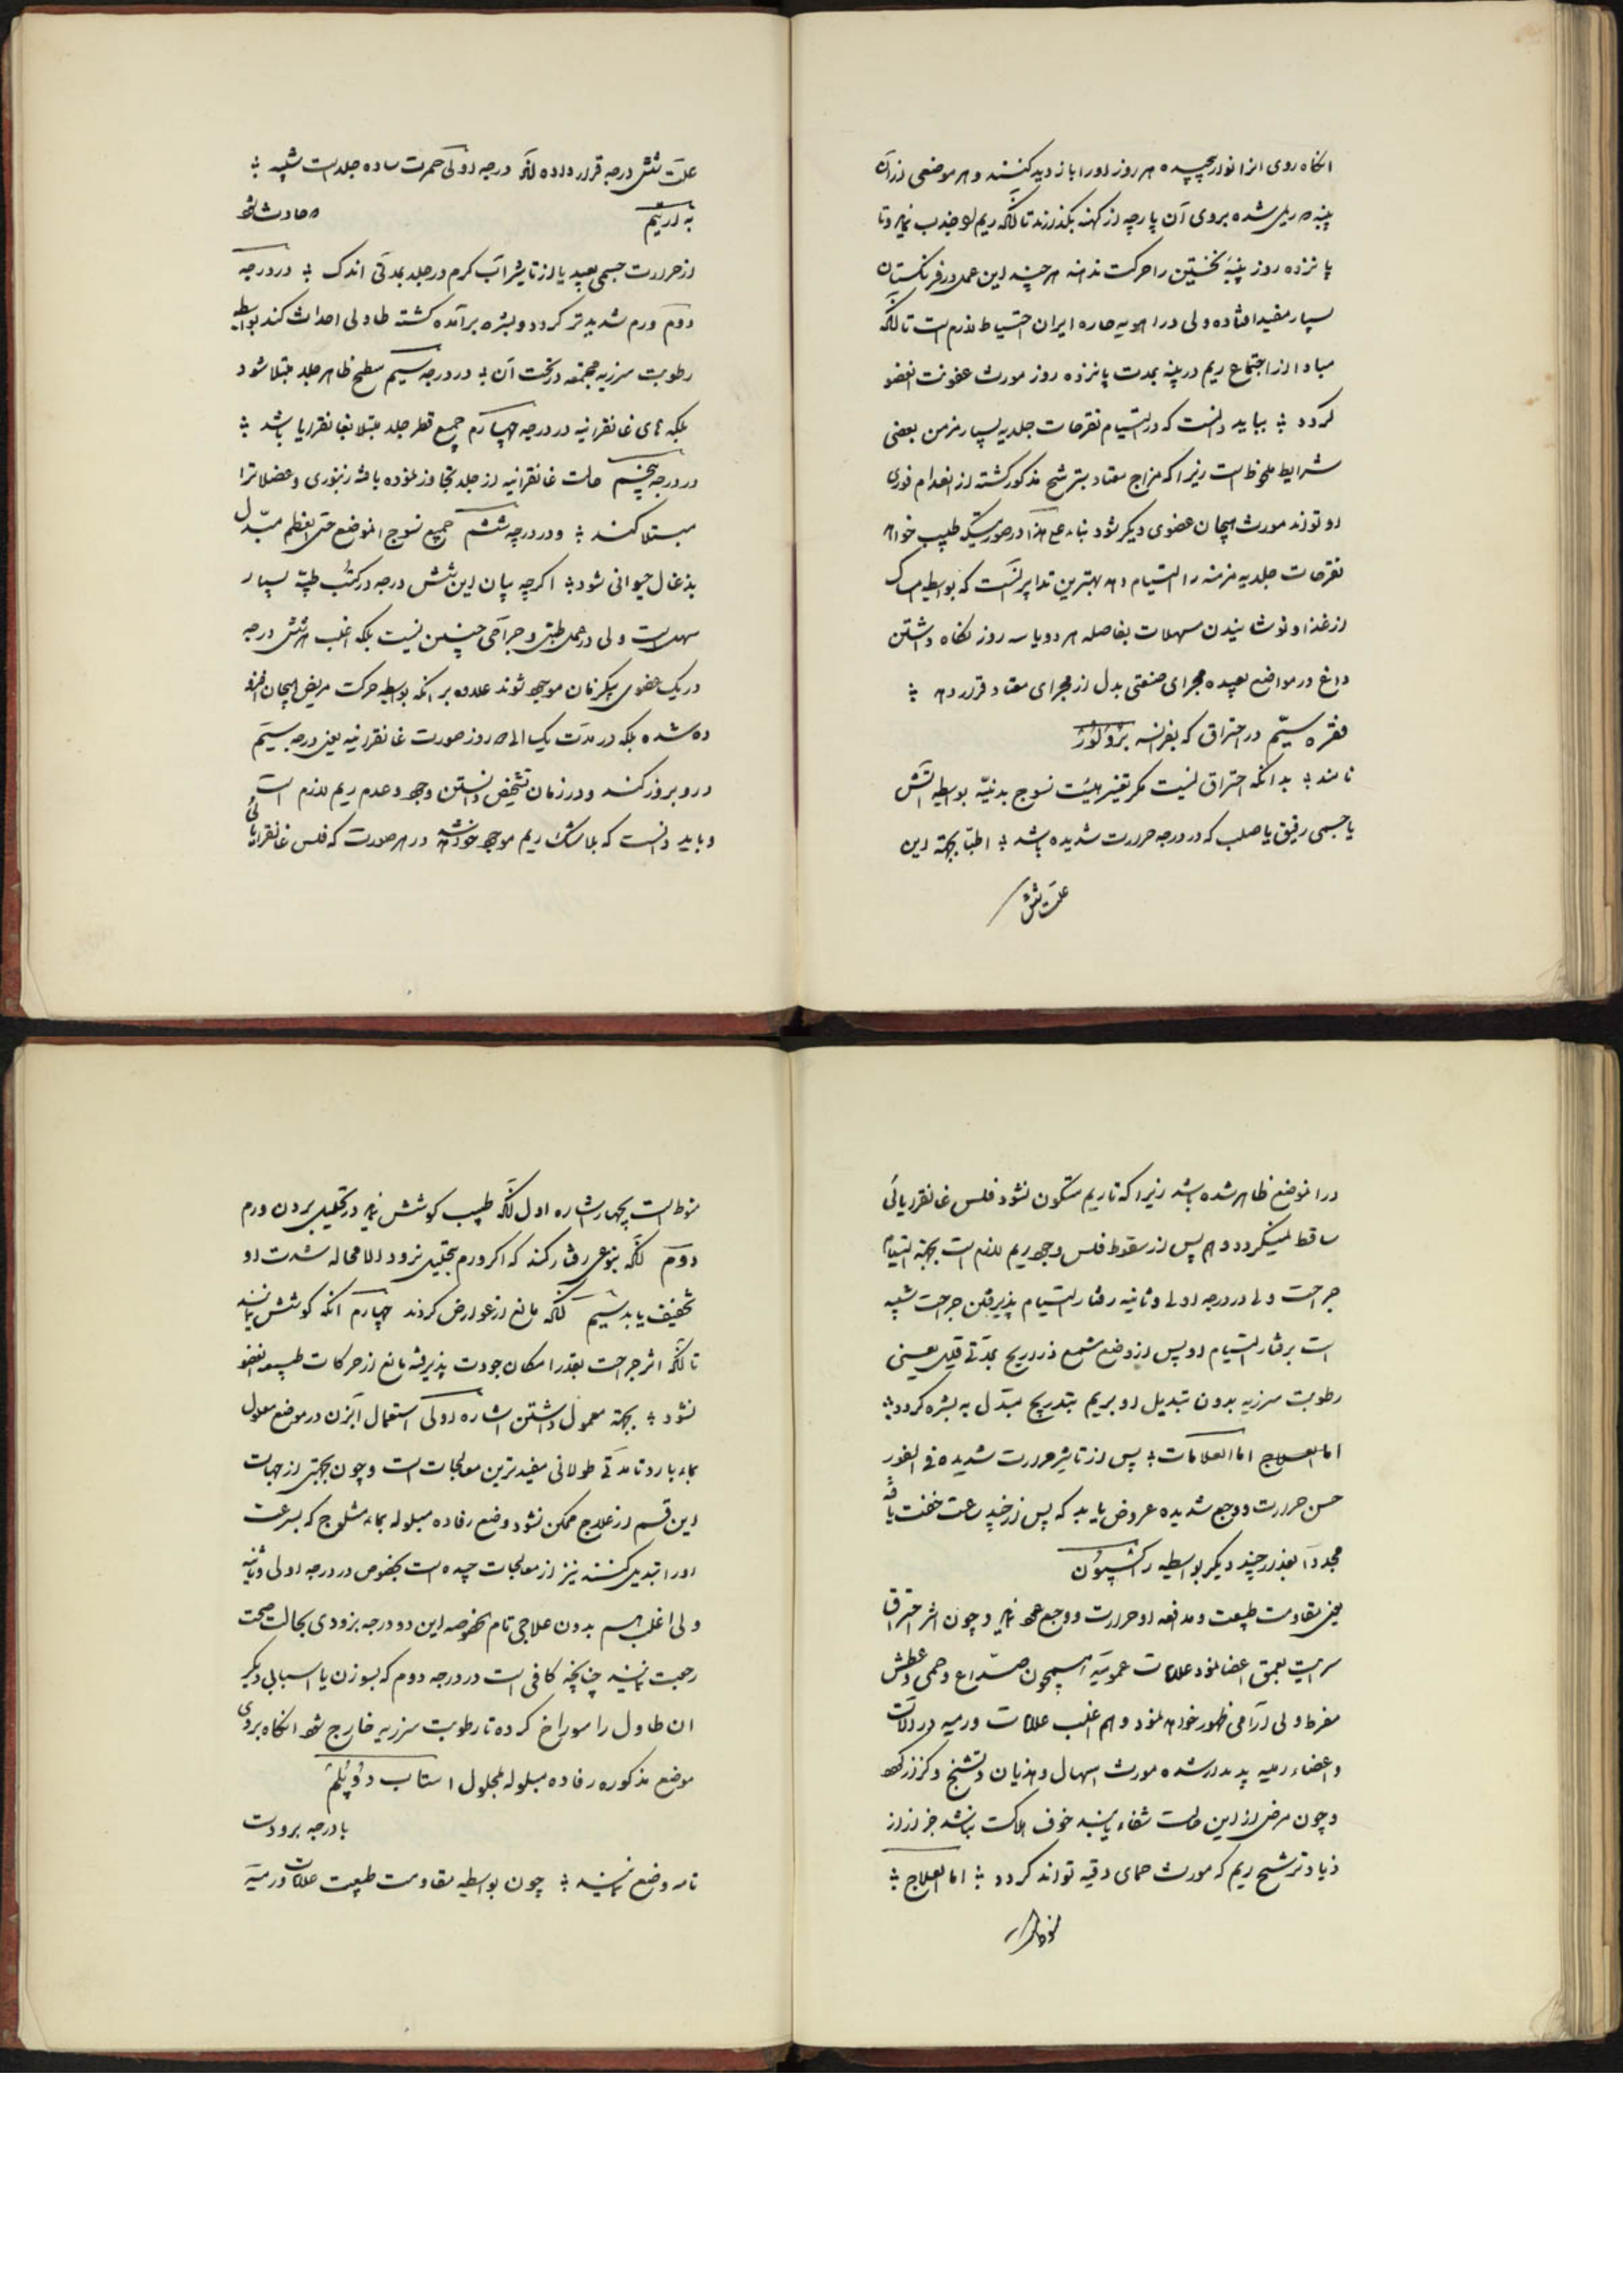 انکاه روی انرا نوار پیچیده هر روز او را بازدید کنند و هر موضعی از آن
پنبه که ریمی شده بروی آن پارچه از کهنه بکذارند تا آنکه ریم او جذب نماید و تا
پانزده روز پنبه نخستین را حرکت ندهند هر چند این عمل در فرنکستان
بسیار مفید افتاده ولی در اهویه حاره ایران احتیاط لازم است تا آنکه
مبادا از اجتماع ریم در پنبه بمدت پانزده روز مورث عفونت العضو
کردد ؛ بباید دانست که در التیام تقرحات جلدیه بسیار مزمن بعضی
شرایط ملحوظ است زیرا که مزاج معتاد بترشح مذکور کشته از انعدام فوری
او تواند مورث هیجان عضوی دیکر شود بناء علی هذا در صورتیکه طبیب خواهد
تقرحات جلدیه مزمنه را التیام دهد بهترین تدابیر انست که بواسطه امساک
از غذا و نوشانیدن مسهلات بفاصله هر دو یا سه روز نکاه داشتن
داغ در مواضع بعیده مجرای صنعتی بدل از مجرای معتاد قرار دهد ؛
فقره سیّم در احتراق که بفرانسه برولور
نامند ؛ بدانکه احتراق نیست مکر تغییر هیئت نسوج بدنیّه بواسطه آتش
یا جسمی رقیق یا صلب که در درجه حرارت شدیده باشد ؛ اطبّا بجهته این
علت شش
علّت شش درجه قرار داده اند درجه اولی حمرت ساده جلد است شبیه ؛
به اریتم که حادث شود
از حرارت جسمی بعید یا از تاثیر آب کرم در جلد بمدتی اندک ؛ در درجه
دوّم ورم شدیدتر کردد و بشره برآمده کشته طاولی احداث کند بواسطه
رطوبت سرزیه مجتمعه در تحت آن ؛ در درجه سیم سطح ظاهر جلد مبتلا شود
بلکه‌ای غانقرانیه در درجه چهارم جمیع قطر جلد مبتلا بغانقرایا باشد ؛
در درجه پنجم حالت غانقرانیه از جلد تجاوز نموده بافته زنبوری و عضلاترا
مبتلا کند ؛ و در درجه ششم جمیع نسوج الموضع حتی العظم مبّدل
بذغال حیوانی شود ؛ اکرچه بیان این شش درجه در کتب طبیّه بسیار
سهل است ولی در عمل طبی و جراحی چنین نیست بلکه اغلب هر شش درجه
در یک عضوی بیکزمان موجود شوند علاوه بر انکه بواسطه حرکت مریض هیجان افزو
ده شده بلکه در مدّت یک الی ده روز صورت غانقرانیه یعنی درجه سیّم
در او بروز کند و در زمان تشخیص دانستن وجود و عدم ریم لازم است
و باید دانست که بلاشک ریم موجود خواهد شد در هر صورت که فلس غانقرایائی
در الموضع ظاهر شده باشد زیرا که تا ریم متکون نشود فلس غانقرایائی
ساقط نمیکردد و هم پس از سقوط فلس وجود ریم لازم است بجهته التیام
جراحت ولی در درجه اولی و ثانیه رفتار التیام پذیرفتن جراحت شبیه
است برفتار التیام او پس از وضع مشمع ذراریح بمدّتی قلیل یعنی
رطوبت سرزیه بدون تبدیل او بریم بتدریج مبّدل به بشره کردد ؛
اما العلاج اما العلامات ؛ پس از تاثیر حرارت شدیده فی الفور
حس حرارت و وجع شدیده عروض یابد که پس از چند ساعت خفت یافته
مجدداً بعد از چند دیکر بواسطه رآکسیون
یعنی مقاومت طبیعت و مدافعه او حرارت و وجع عود نماید و چون اثر احتراق
سرایت بعمق اعضا نمود علامات عمومیّه همچون صداع و حمی و عطش
مفرط ولی آرامی ظهور خواهد نمود و هم اغلب علامات ورمیه در آلات
و اعضاء رئیسه پدیدار شده مورث اسهال و هذیان و تشنج و کزاز کردد
و چون مرض از این حالت شفاء یابد خوف هلاکت نباشد جز از
زیاد ترشح ریم که مورث حمای دقیه تواند کردد ؛ اما العلاج ؛
منوط است
منوط است بچهار اشاره اول آنکه طبیب کوشش نماید در تحلیل بردن ورم
دوّم آنکه بنوعی رفتار کند که اکر ورم بتحلیل نرود لامحاله شدت او
تخفیف یابد سیّم آنکه مانع از عوارض کردند چهارم آنکه کوشش نمایند
تا آنکه اثر جراحت بقدر امکان جودت پذیرفته مانع از حرکات طبیعیه العضو
نشود ؛ بجهته معمول داشتن اشاره اولی استعمال آبزن در موضع معلول
بماء بارد تا مدّتی طولانی مفیدترین معالجات است و چون بجهتی از جهات
این قسم از علاج ممکن نشود وضع رفاده مبلوله بماء مثلوج که بسرعت
او را تبدیل کنند نیز از معالجات جیده است بخصوص در درجه اولی و ثانیه
ولی اغلب هم بدون علاجی تام بخصوصه این دو درجه بزودی بحالت صحت
رجعت نمایند چنانچه کافی است در درجه دوم که بسوزن یا اسبابی دیکر
ان طاول را سوراخ کرده تا رطوبت سرزیه خارج شود انکاه بروی
موضع مذکوره رفاده مبلوله بمحلول استات دو پلمب
با درجه برودت
تامه وضع نمایند ؛ چون بواسطه مقاومت طبیعت علامات ورمیّه